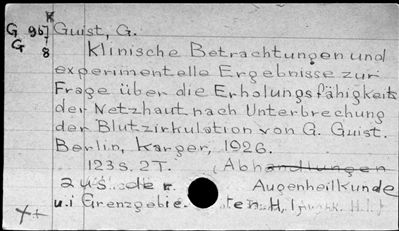 G 967 Guist, G.
G 8 Klinische Betrachtungen und
experimentelle Ergebnisse zur
Frage über die Erholungsfähigkeit
der Netzhaut nach Unterbrechung
der Blutzirkulation von G. Guist.
Berlin, Karger, 1926.
123 S. 2T. (Abhandlungen
aus der Augenheilkunde
u. i Grenzgebie. H. 1